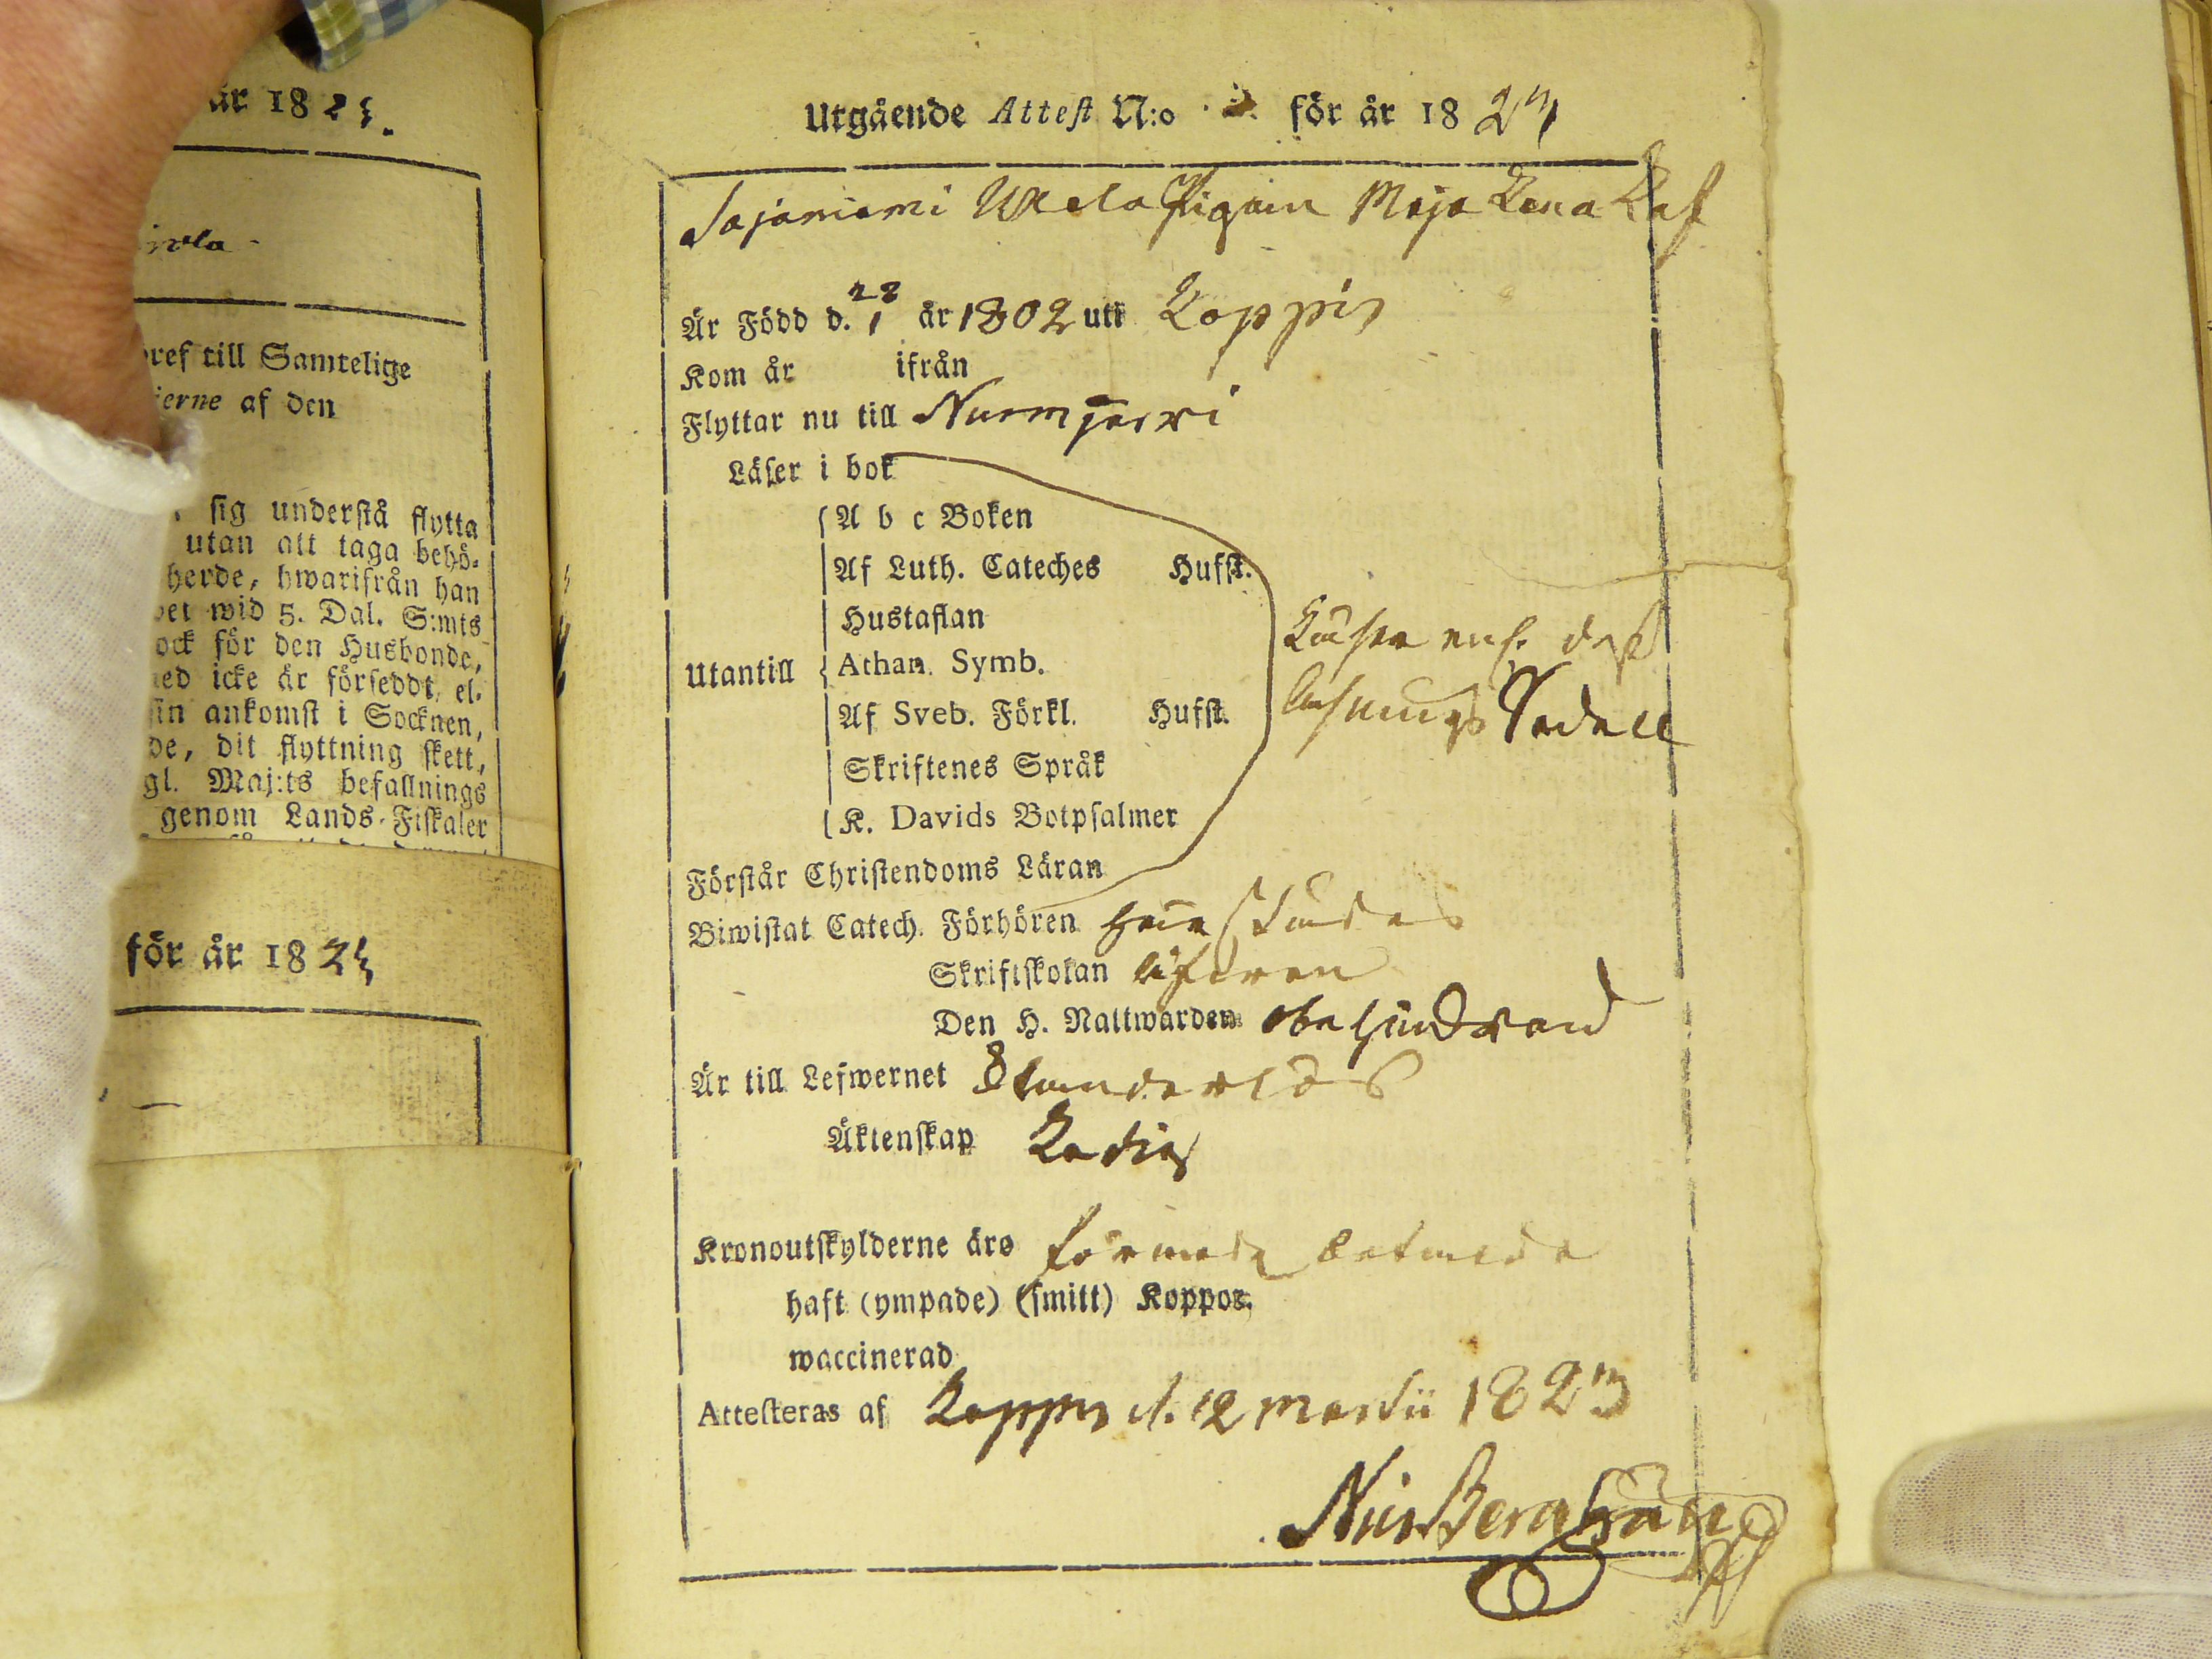 år 1823.
ivla
bref till Samtelige
ierne af den
sig understå flytta
utan att taga behö-
herde, hwarifrån han
wid 5. Dal. S:mts
ock för den Husbonde,
icke är förseddt, el-
sin ankomst i Socknen,
de, dit flyttning skett,
gl. Maj:ts befallnings
genom Lands-Fiskaler
för år 1823
Utgående Attest N:o för år 1823
Sajaniemi Uk ela Pigan Maja Lena
Är Född d. 28/1 år 1802 uti Loppis
Kom år ifrån
Flyttar nu till Nurmjerwi
Läser i bok
A b c Boken
Af Luth. Cateches Hufst.
Hustaflan
Utantill Athan. Symb.
Af Sveb. Förkl. Hufst.
Skriftenes Språk
K. Davids Botpsalmer
dess
Läsnings Sedell
Förstår Christendoms Läran
Biwistat Catech. Förhören
Skriftskolan äfwen
Den H. Nattwarden obehindrad
Är till Lefwernet Klanderlös
Äktenskap Ledig
Kronoutskylderne äro betalda
haft (ympade) (smitt) Koppor.
waccinerad
Attesteras af Loppis d. 12 Martii 1823